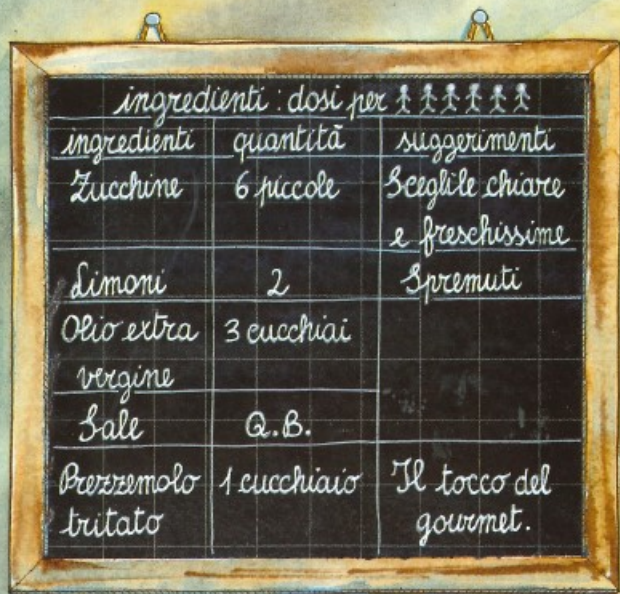 ingredienti: dosi per
ingredienti quantità suggerimenti
Zucchine 6 piccole Sceglile chiare
e freschissime
Limoni 2 Spremuti
Olio extra 3 cucchiai
vergine
Sale Q.B.
Prezzemolo 1 cucchiaio Il tocco del
tritato gourmet.